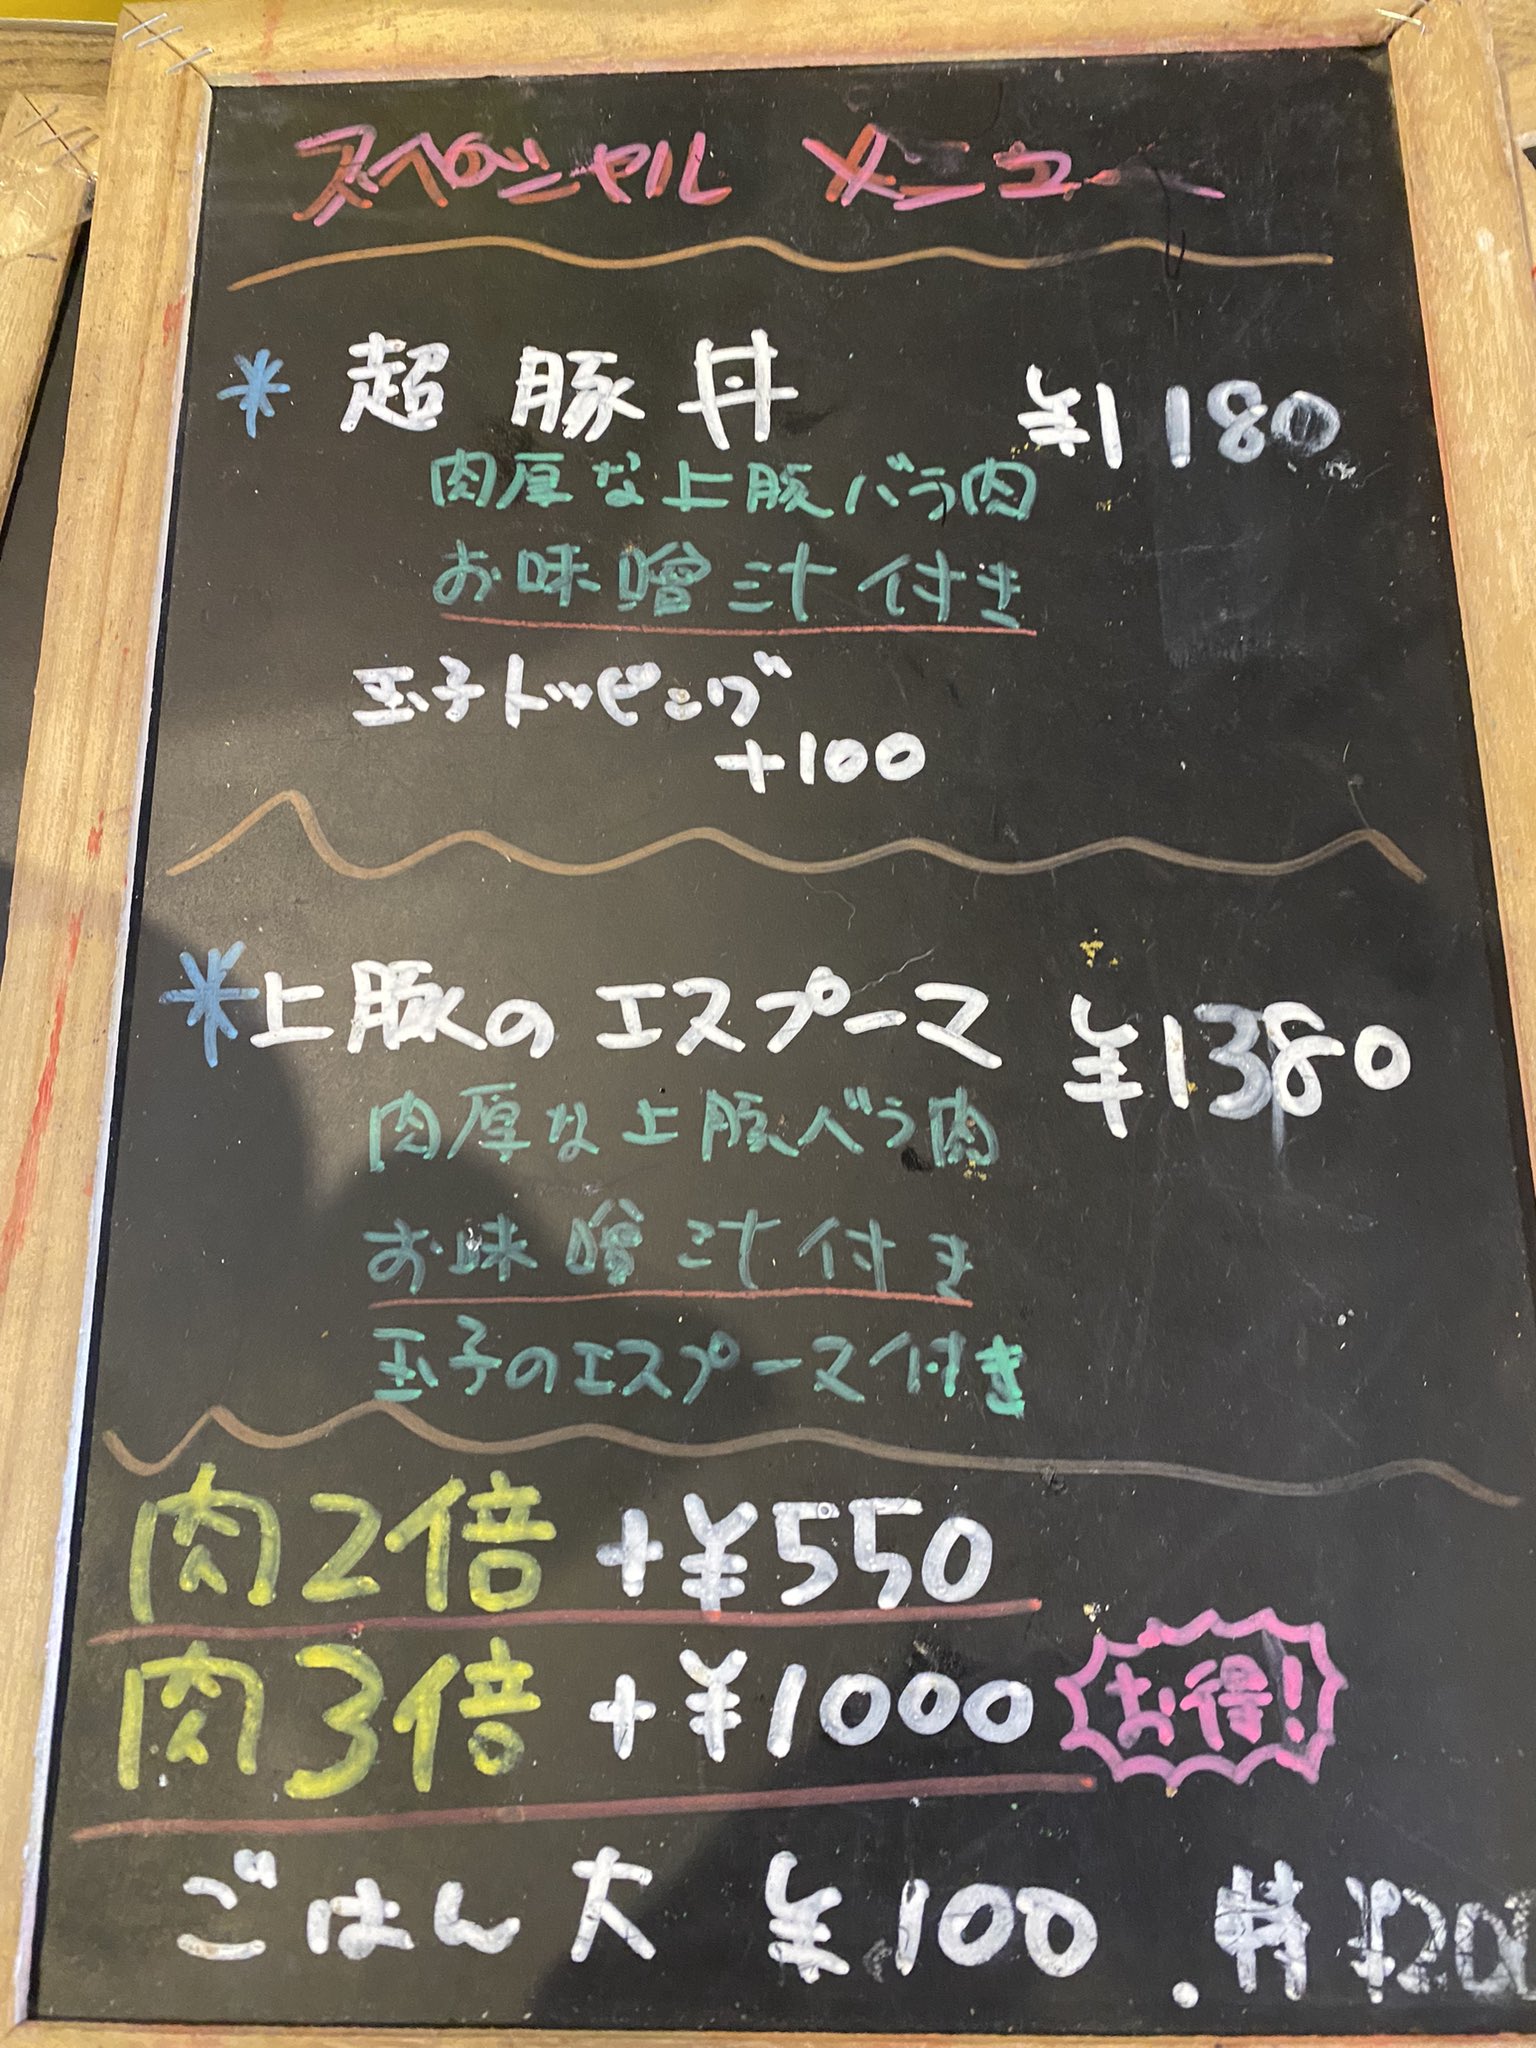 スペシャル メニュー
* 超豚丼 ¥1180
肉厚な上豚バラ肉
お味噌汁付き
玉子トッピング
+100
*上豚のエスプーマ ¥1380
肉厚な上豚バラ肉
お味噌汁付き
玉子のエスプーマ付き
肉2倍 +¥550
肉3倍 +¥1000 お得!
ごはん大 ¥100 . 特 ¥200